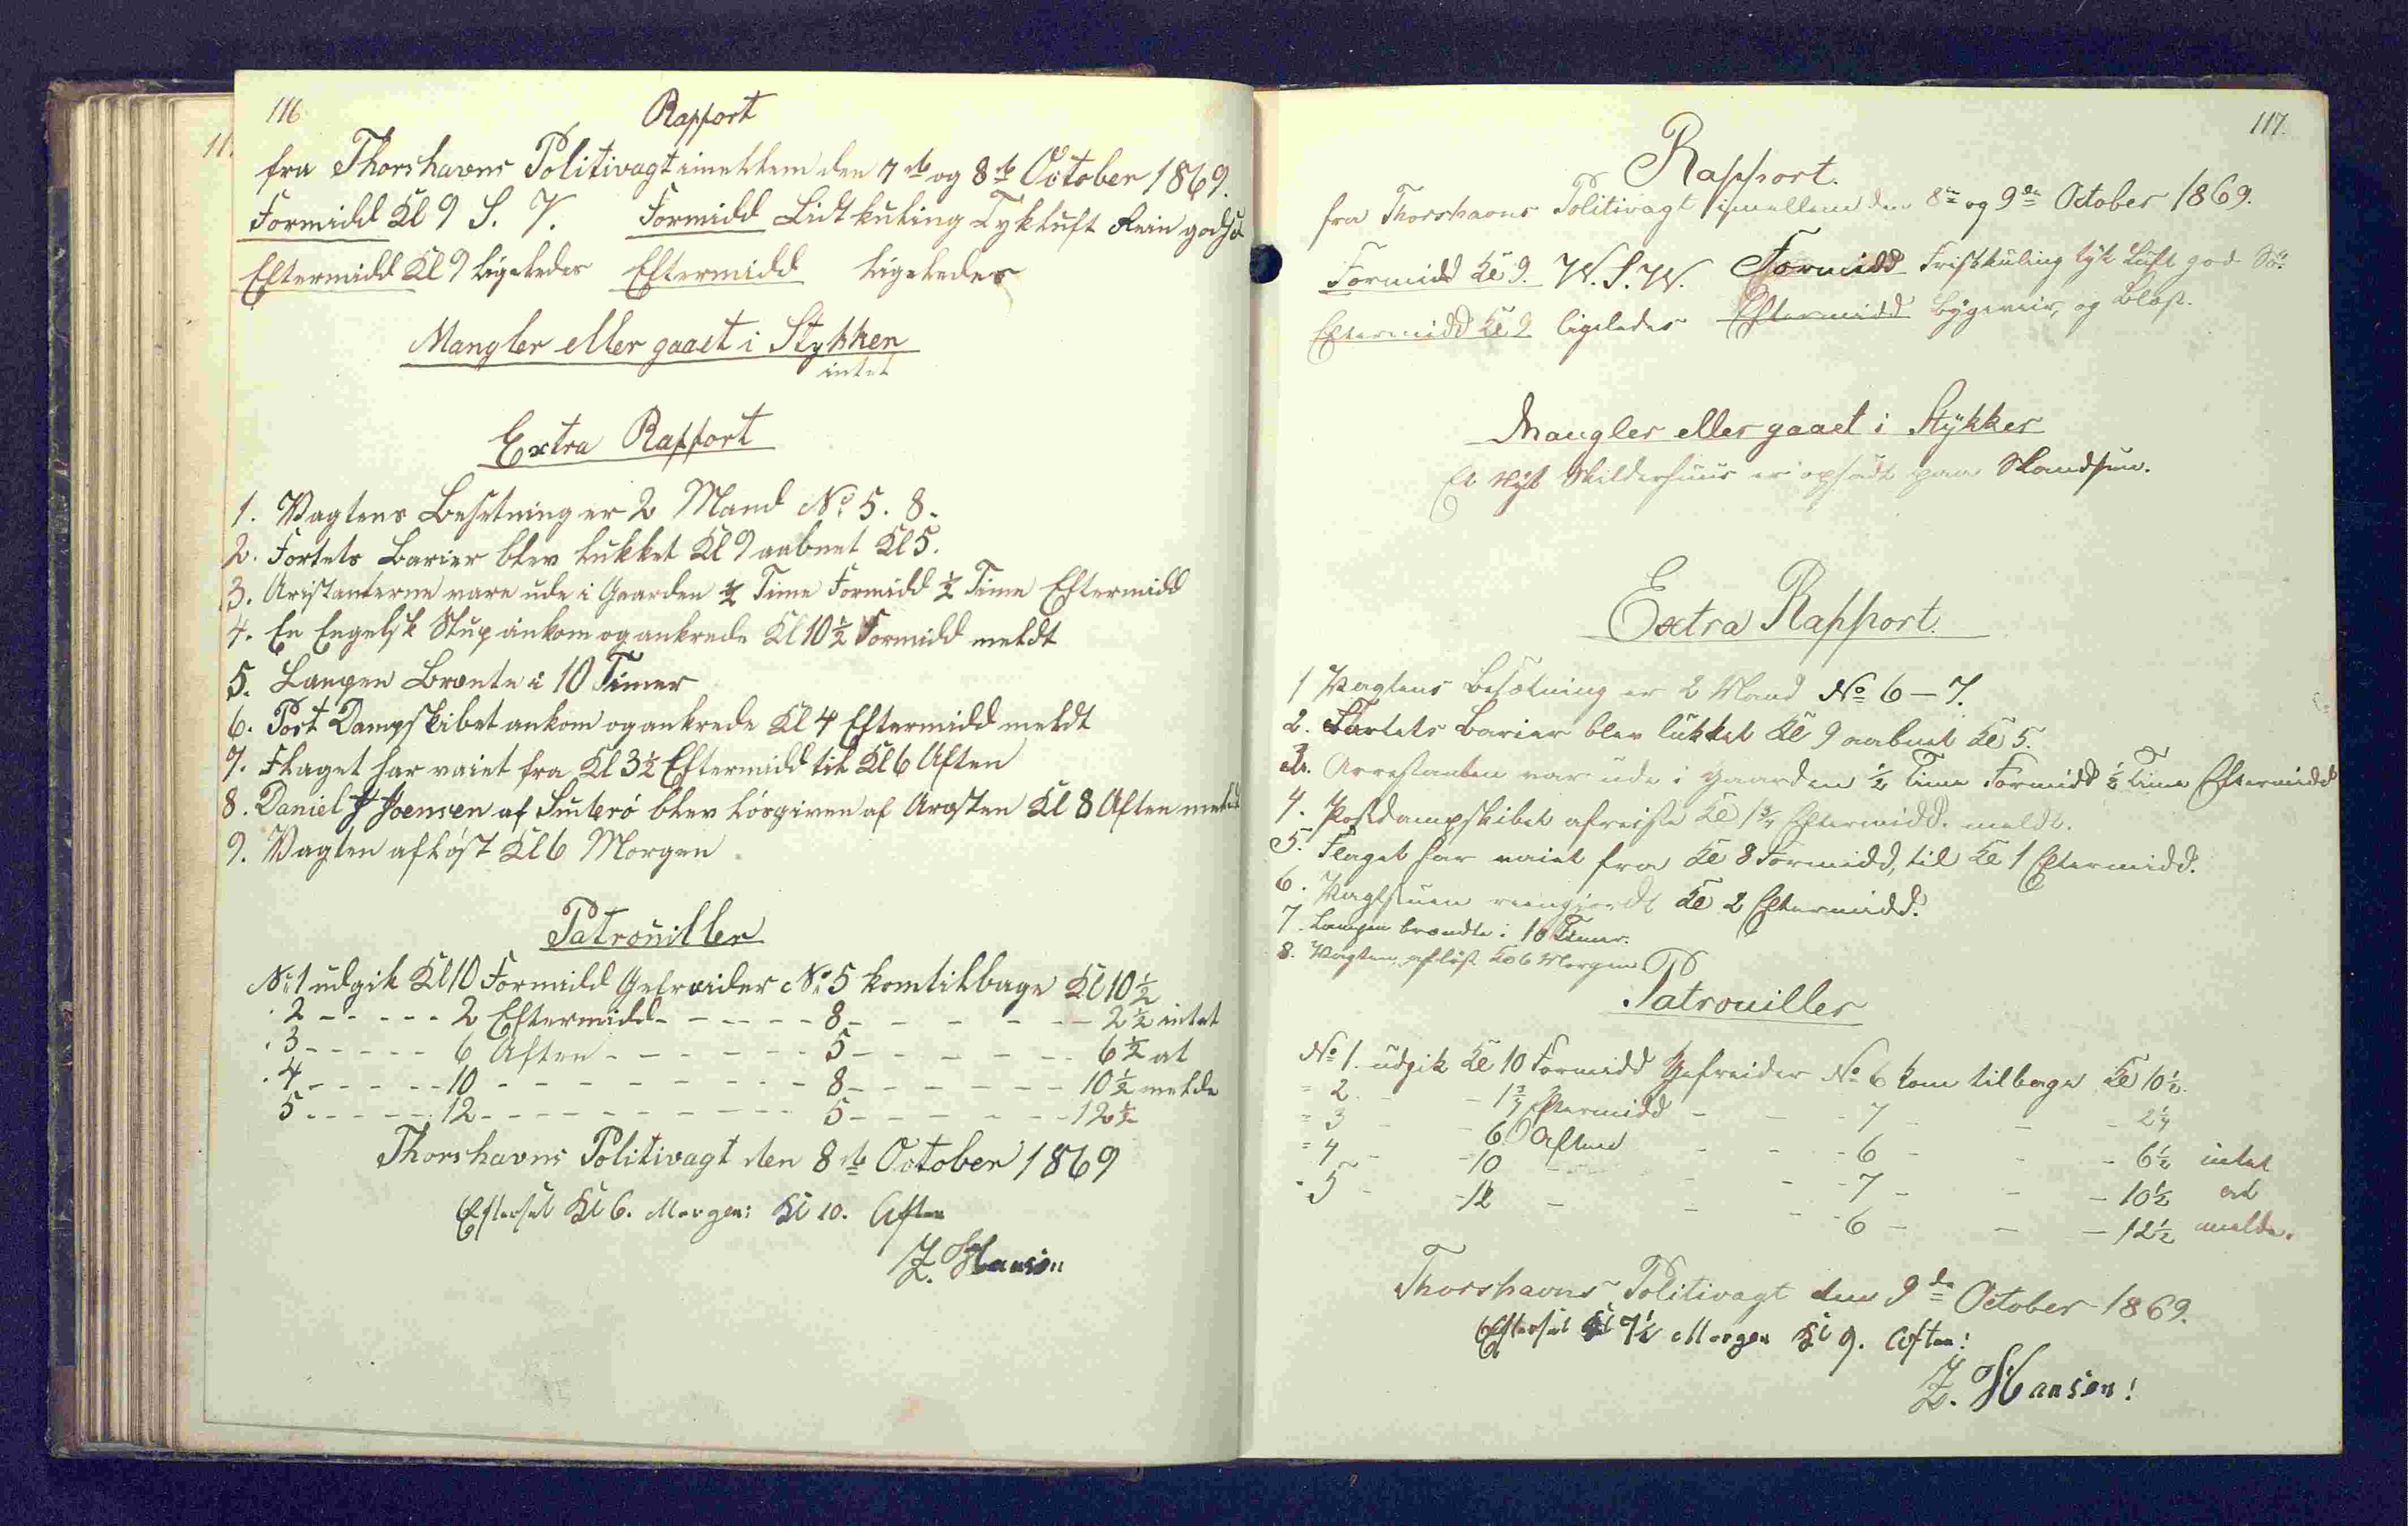 116
Rapport
fra Thorshavns Politivagt imellem den 7de og 8de October 1869.
Formidd Kl 9 S. V. Formidd Lidt kuling Tykluft Rein god Sö
Eftermidd Kl 9 ligeledes Eftermidd ligeledes
Mangler eller gaaet i Stykker
intet
Extra Rapport
1. Vagtens Besetning er 2 Mand No 5. 8.
2. Fortets Barier blev lukket Kl 9 aabnet Kl 5.
3. Aristanterne vare ude i Gaarden ½ Time Formidd ½ Time Eftermidd
4. En Engelsk Slup ankom og ankrede Kl 10½ Formidd meldt
5. Lampen Brænte i 10 Timer
6. Post Dampskibet ankom og ankrede Kl 4 Eftermidd meldt
7. Flaget har vaiet fra Kl 3½ Eftermidd til Kl 6 Aften
8. Daniel J Joensen af blev lösgiven af Aresten Kl 8 Aften meldt
9. Vagten aflöst Kl 6 Morgen
Patrouiller
No 1 udgik Kl 10 Formidd Gefreider No 5 kom tilbage Kl 10½
2 - - - - - 2 Eftermidd - - - - - 8 - - - - - 2½ intet
3 - - - - - 6 Aften - - - - - 5 - - - - - 6½ at
4 - - - - - 10 - - - - - 8 - - - - - 10½ melde
5 - - - - - 12 - - - - - 5 - - - - - 12½
Thorshavns Politivagt den 8de October 1869
Efterset Kl 6. Morgen: Kl 10. Aften
Z. Hansen
117.
Rapport.
fra Thorshavns Politivagt imellem den 8de og 9de October 1869.
Formidd Kl 9. W. S. W. Formidd Friskkuling tyk Luft god Sö.
Eftermidd Kl 9 ligeledes Eftermidd Bygeveir, og Blæst.
Mangler eller gaaet i Stykker
Et Nyt Skilderhuus er opsadt paa Skandsen.
Extra Rapport.
1 Vagtens Besætning er 2 Mand No 6 - 7.
2. Fortets Barier blev lukket Kl 9 aabnet Kl 5.
3. Arrestanten var ude i Gaarden ½ Time Formidd ½ Time Eftermidd
4. Postdampskibet afreiste Kl 1¾ Eftermidd. meldt.
5. Flaget har vaiet fra Kl 8 Formidd, til Kl 1 Eftermidd.
6. Vagtstuen reengjordt Kl 2 Eftermidd.
7. Lampen brændte i 10 Timer.
8. Vagten aflöst Kl 6 Morgen
Patrouiller
No 1. udgik Kl 10 Formidd Gefreider No 6 kom tilbage Kl 10½.
" 2. - - 1¾ Eftermidd - - 7 - - 2¼
" 3 - - 6 Aften - - 6 - - 6½ intet
" 4 - - 10 - - 7 - - 10½ at
" 5 - - 12 - - 6 - - 12½ melde.
Thorshavns Politivagt den 9de October 1869.
Efterset Kl 7½ Morgen Kl 9. Aften!
Z. Hansen!